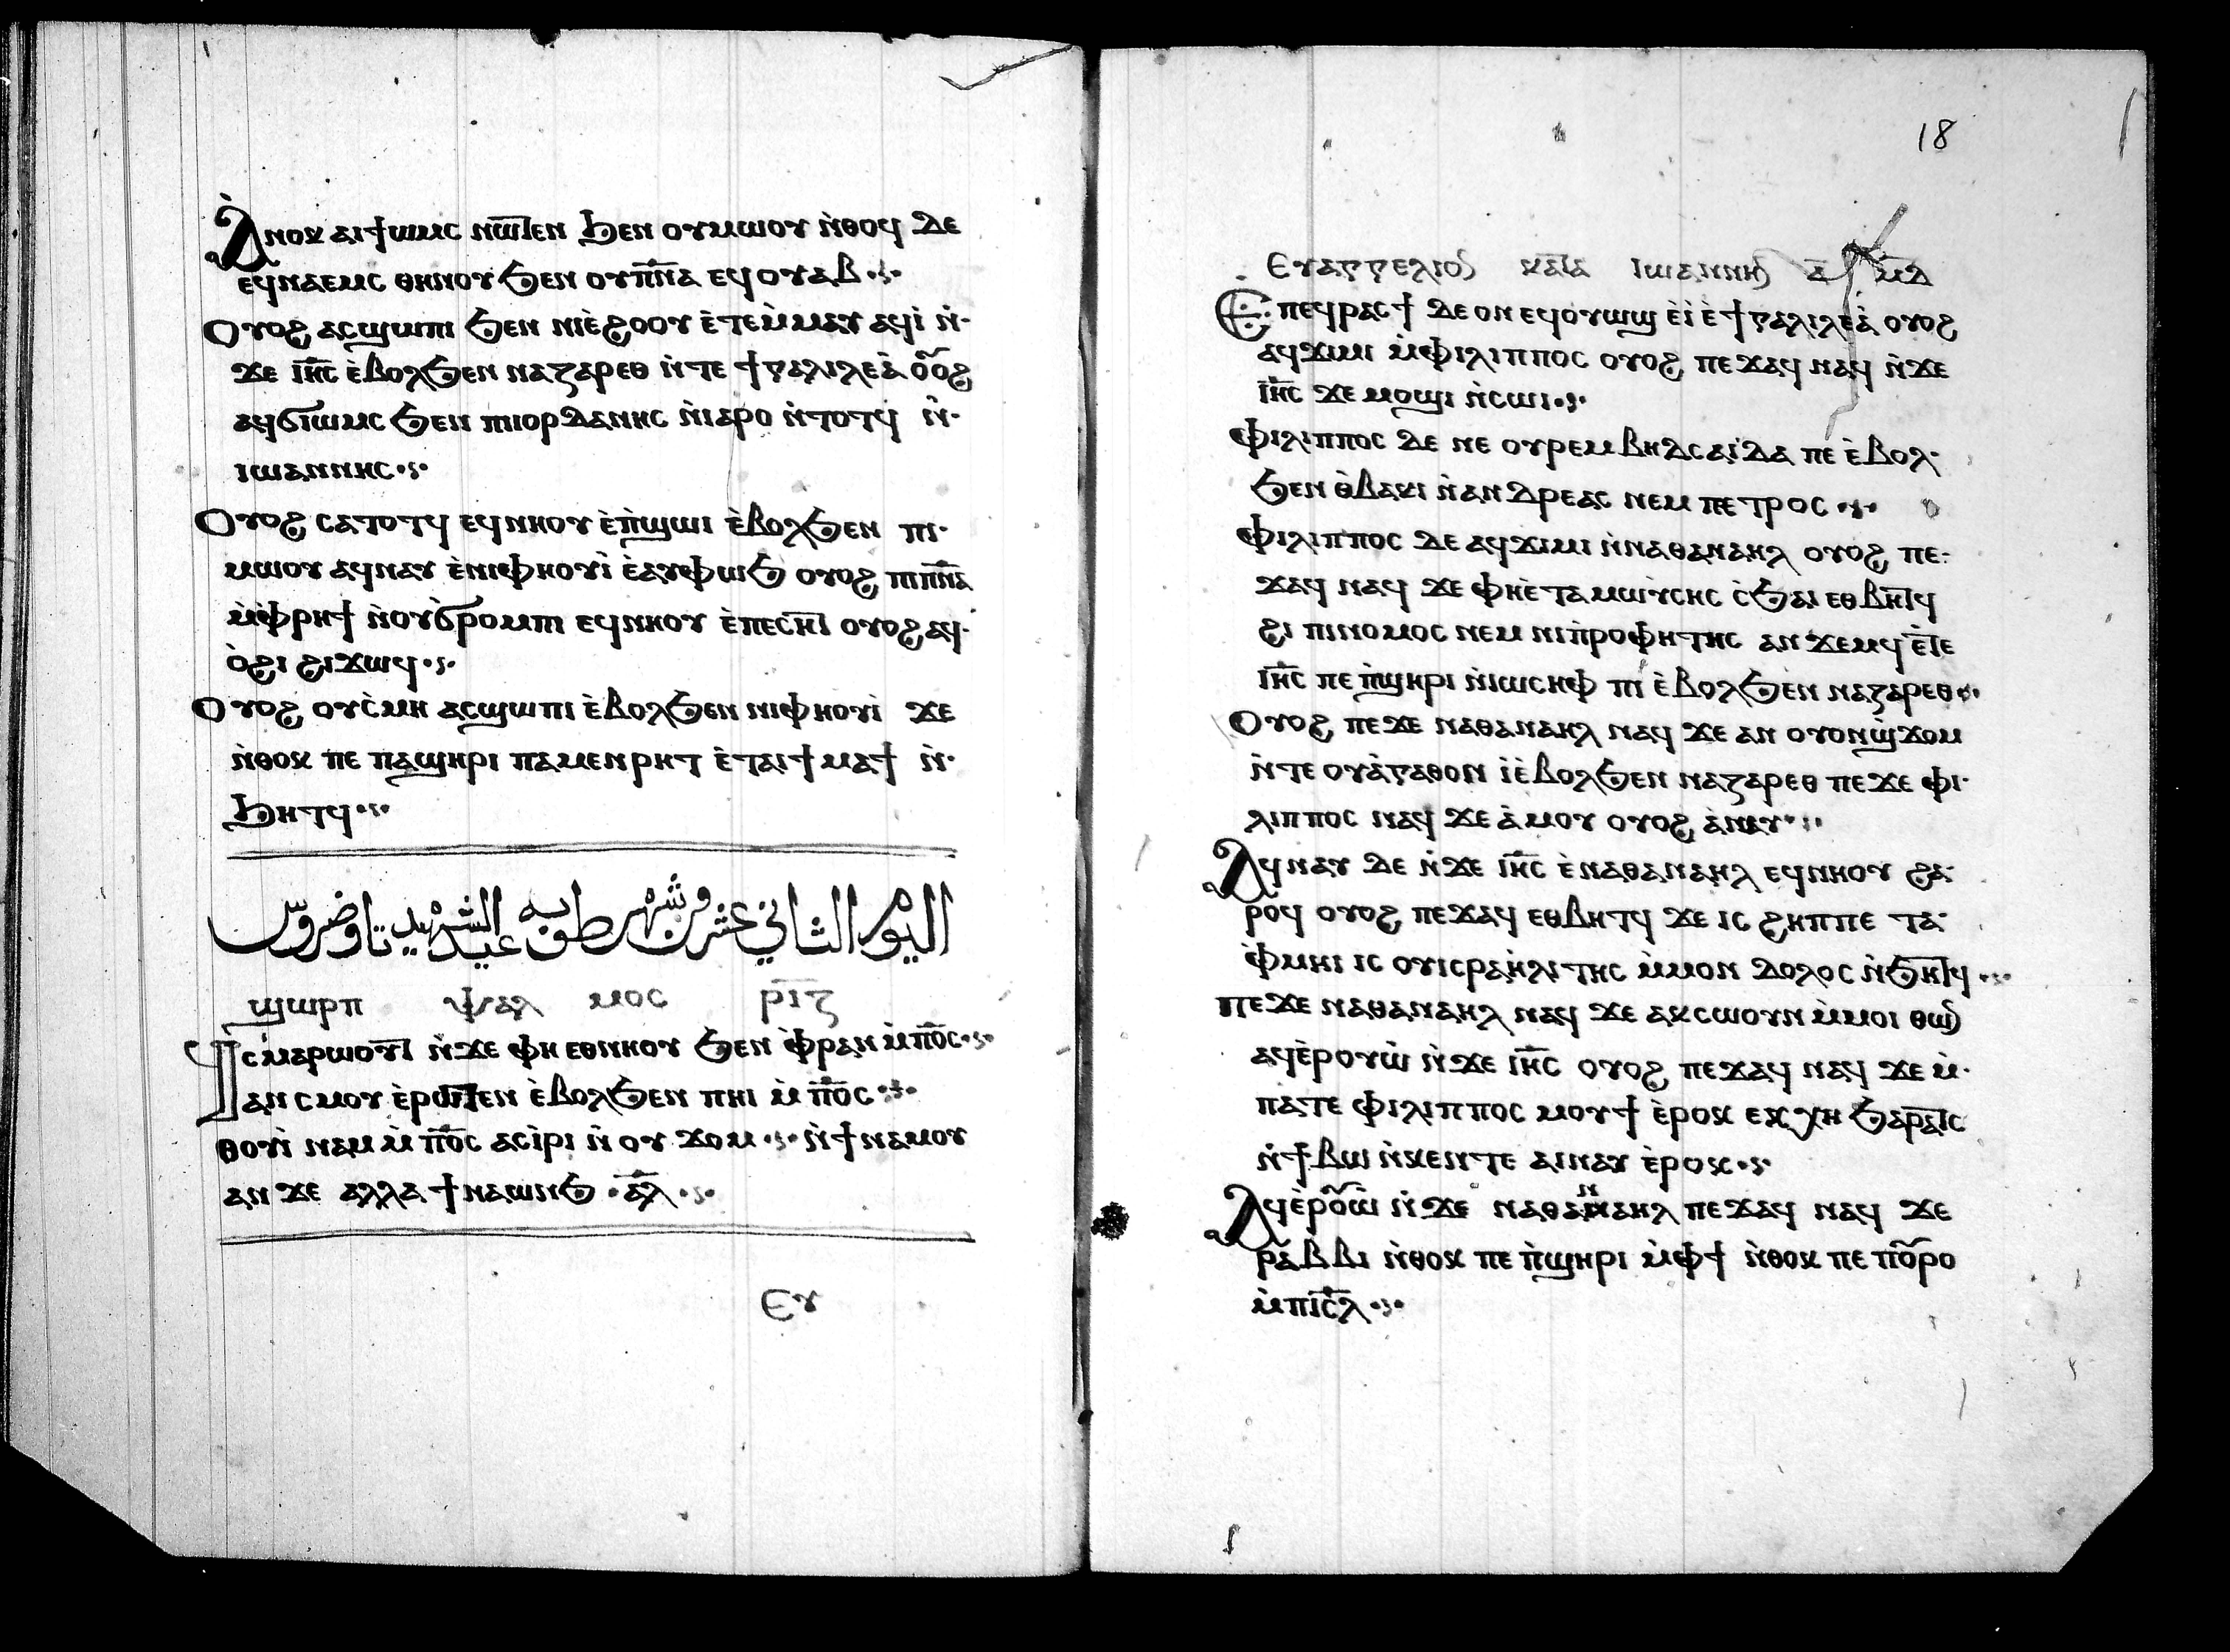 Ⲁ̀ⲛⲟⲕ ⲁⲓϯⲱⲙⲥ ⲛⲱ̅ⲧⲉⲛ ϧⲉⲛ ⲟⲩⲙⲱⲟⲩ ⲛ̀ⲑⲟϥ ⲇⲉ
ⲉϥⲛⲁⲉⲙⲥ ⲑⲏⲛⲟⲩ ϧⲉⲛ ⲟⲩⲡ̅ⲛ̅ⲁ ⲉϥⲟⲩⲁⲃ
Ⲟⲩⲟϩ ⲁⲥϣⲱⲡⲓ ϧⲉⲛ ⲛⲓⲉ̀ϩⲟⲟⲩ ⲉ̀ⲧⲉⲙ̀ⲙⲁⲩ ⲁϥⲓ̀ ⲛ̀
ϫⲉ ⲓⲏ̅ⲥ ⲉ̀ⲃⲟⲗϧⲉⲛ ⲛⲁⲍⲁⲣⲉⲑ ⲛ̀ⲧⲉ ϯⲅⲁⲗⲓⲗⲉⲁ̀ ⲟⲟϩ
ⲁϥϭⲓⲱⲙⲥ ϧⲉⲛ ⲡⲓⲟⲣⲇⲁⲛⲏⲥ ⲛ̀ⲓⲁⲣⲟ ⲛ̀ⲧⲟⲧϥ ⲛ̀
ⲓⲱⲁⲛⲛⲏⲥ
Ⲟⲩⲟϩ ⲥⲁⲧⲟⲧϥ ⲉϥⲛⲏⲟⲩ ⲉ̀ⲡ̀ϣⲱⲓ ⲉ̀ⲃⲟⲗϧⲉⲛ ⲡⲓ
ⲙⲱⲟⲩ ⲁϥⲛⲁⲩ ⲉ̀ⲛⲓⲫⲏⲟⲩⲓ̀ ⲉ̀ⲁⲩⲫⲱϧ ⲟⲩⲟϩ ⲡⲓⲡ̅ⲛ̅ⲁ
ⲙ̀ⲫⲣⲏϯ ⲛ̀ⲟⲩϭ̀ⲣⲟⲙⲡⲓ ⲉϥⲛⲏⲟⲩ ⲉ̀ⲡⲉⲥⲏ̅ⲧ ⲟⲩⲟϩ ⲁϥ
ⲟ̀ϩⲓ ϩⲓϫⲱϥ
Ⲟⲩⲟϩ ⲟⲩⲥ̀ⲙⲏ ⲁⲥϣⲱⲡⲓ ⲉ̀ⲃⲟⲗϧⲉⲛ ⲛⲓⲫⲏⲟⲩⲓ̀ ϫⲉ
ⲛ̀ⲑⲟⲕ ⲡⲉ ⲡⲁϣⲏⲣⲓ ⲡⲁⲙⲉⲛⲣⲏⲧ ⲉ̀ⲧⲁⲓϯⲙⲁϯ ⲛ̀
ϧⲏⲧϥ
اليوم الثاني عشر من شهر طوبه عيد الشهيد تاوضروس
ϣⲱⲣⲡ ⲯⲁⲗⲙⲟⲥ ⲣ̅ⲓ̅ⲍ
Ϥⲥ̀ⲙⲁⲣⲱⲟⲩ̅ⲧ ⲛ̀ϫⲉ ⲫⲏ ⲉⲑⲛⲏⲟⲩ ϧⲉⲛ ⲫ̀ⲣⲁⲛ ⲙ̀ⲡ̅ⲟ̅ⲥ
ⲁⲛⲥⲙⲟⲩ ⲉ̀ⲣⲱ̅ⲧⲉⲛ ⲉ̀ⲃⲟⲗϧⲉⲛ ⲡⲏⲓ ⲙ̀ⲡ̅ⲟ̅ⲥ
ⲑⲟⲩⲓ̀ⲛⲁⲙ ⲙ̀ⲡ̅ⲟ̅ⲥ ⲁⲥⲓ̀ⲣⲓ ⲛ̀ⲟⲩϫⲟⲙ ⲛ̀ϯⲛⲁⲙⲟⲩ
ⲁⲛ ϫⲉ ⲁⲗⲗⲁ ϯⲛⲁⲱⲛϧ ⲁ̅ⲗ
Ⲉⲩ
18
Ⲉⲩⲁⲅⲅⲉⲗⲓⲟⲛ ⲕⲁ̅ⲧⲁ ⲓⲱⲁⲛⲛⲏⲛ ⲁ̅ ⲙ̅ⲇ
Ⲉⲡⲉϥⲣⲁⲥϯ ⲇⲉ ⲟⲛ ⲉϥⲟⲩⲱϣ ⲉ̀ⲓ̀ ⲉ̀ϯⲅⲁⲗⲓⲗⲉⲁ̀ ⲟⲩⲟϩ
ⲁϥϫⲓⲙⲓ ⲙ̀ⲫⲓⲗⲓⲡⲡⲟⲥ ⲟⲩⲟϩ ⲡⲉϫⲁϥ ⲛⲁϥ ⲛ̀ϫⲉ
ⲓⲏ̅ⲥ ϫⲉ ⲙⲟϣⲓ ⲛ̀ⲥⲱⲓ
Ⲫⲓⲗⲓⲡⲡⲟⲥ ⲇⲉ ⲛⲉ ⲟⲩⲣⲉⲙⲃⲏⲇⲥⲁⲓ̀ⲇⲁ ⲡⲉ ⲉ̀ⲃⲟⲗ
ϧⲉⲛ ⲑ̀ⲃⲁⲕⲓ ⲛ̀ⲁⲛⲇⲣⲉⲁⲥ ⲛⲉⲙ ⲡⲉⲧⲣⲟⲥ
Ⲫⲓⲗⲓⲡⲡⲟⲥ ⲇⲉ ⲁϥϫⲓⲙⲓ ⲛ̀ⲛⲁⲑⲁⲛⲁⲏⲗ ⲟⲩⲟϩ ⲡⲉ
ϫⲁϥ ⲛⲁϥ ϫⲉ ⲫⲏⲉ̀ⲧⲁⲙⲱⲩ̀ⲥⲏⲥ ⲥ̀ϧⲁⲓ ⲉⲑⲃⲏ̅ⲧϥ
ϩⲓ ⲡⲓⲛⲟⲙⲟⲥ ⲛⲉⲙ ⲛⲓⲡ̀ⲣⲟⲫⲏⲧⲏⲥ ⲁⲛϫⲉⲙϥ ⲉ̅ⲧⲉ
ⲓⲏ̅ⲥ ⲡⲉ ⲡ̀ϣⲏⲣⲓ ⲛ̀ⲓⲱⲥⲏⲫ ⲡⲓ ⲉ̀ⲃⲟⲗϧⲉⲛ ⲛⲁⲍⲁⲣⲉⲑ
Ⲟⲩⲟϩ ⲡⲉϫⲉ ⲛⲁⲑⲁⲛⲁⲏⲗ ⲛⲁϥ ϫⲉ ⲁⲛ ⲟⲩⲟⲛϣ̀ϫⲟⲙ
ⲛ̀ⲧⲉ ⲟⲩⲁ̀ⲅⲁⲑⲟⲛ ⲓ̀ ⲉ̀ⲃⲟⲗϧⲉⲛ ⲛⲁⲍⲁⲣⲉⲑ ⲡⲉϫⲉ ⲫⲓ
ⲗⲓⲡⲡⲟⲥ ⲛⲁϥ ϫⲉ ⲁ̀ⲙⲟⲩ ⲟⲩⲟϩ ⲁ̀ⲛⲁⲩ
Ⲁϥⲛⲁⲩ ⲇⲉ ⲛ̀ϫⲉ ⲓⲏ̅ⲥ ⲉ̀ⲛⲁⲑⲁⲛⲁⲏⲗ ⲉϥⲛⲏⲟⲩ ϩⲁ
ⲣⲟϥ ⲟⲩⲟϩ ⲡⲉϫⲁϥ ⲉⲑⲃⲏⲧϥ ϫⲉ ⲓⲥ ϩⲏⲡⲡⲉ ⲧⲁ
ⲫ̀ⲙⲏⲓ ⲓⲥ ⲟⲩⲓⲥⲣⲁⲏ̀ⲗⲓⲧⲏⲥ ⲙ̀ⲙⲟⲛ ⲇⲟⲗⲟⲥ ⲛ̀ϧⲏ̅ⲧϥ
Ⲡⲉϫⲉ ⲛⲁⲑⲁⲛⲁⲏⲗ ⲛⲁϥ ϫⲉ ⲁⲕⲥⲱⲟⲩⲛ ⲙ̀ⲙⲟⲓ ⲑⲱⲛ
ⲁϥⲉ̀ⲣⲟⲩⲱ̀ ⲛ̀ϫⲉ ⲓⲏ̅ⲥ ⲟⲩⲟϩ ⲡⲉϫⲁϥ ⲛⲁϥ ϫⲉ ⲙ̀
ⲡⲁⲧⲉ ⲫⲓⲗⲓⲡⲡⲟⲥ ⲙⲟⲩϯ ⲉ̀ⲣⲟⲕ ⲉⲕⲭⲏ ϧⲁⲣⲁ̅ⲧⲥ
ⲛ̀ϯⲃⲱ ⲛ̀ⲕⲉⲛⲧⲉ ⲁⲓⲛⲁⲩ ⲉ̀ⲣⲟⲕ
Ⲁϥⲉ̀ⲣⲟⲱ̀ ⲛ̀ϫⲉ ⲛⲁⲑⲁⲛⲁⲏⲗ ⲡⲉϫⲁϥ ⲛⲁϥ ϫⲉ
ⲣⲁⲃⲃⲓ ⲛ̀ⲑⲟⲕ ⲡⲉ ⲡ̀ϣⲏⲣⲓ ⲙ̀ⲫϯ ⲛ̀ⲑⲟⲕ ⲡⲉ ⲡⲟⲣⲟ
ⲙ̀ⲡⲓⲥ̅ⲗ